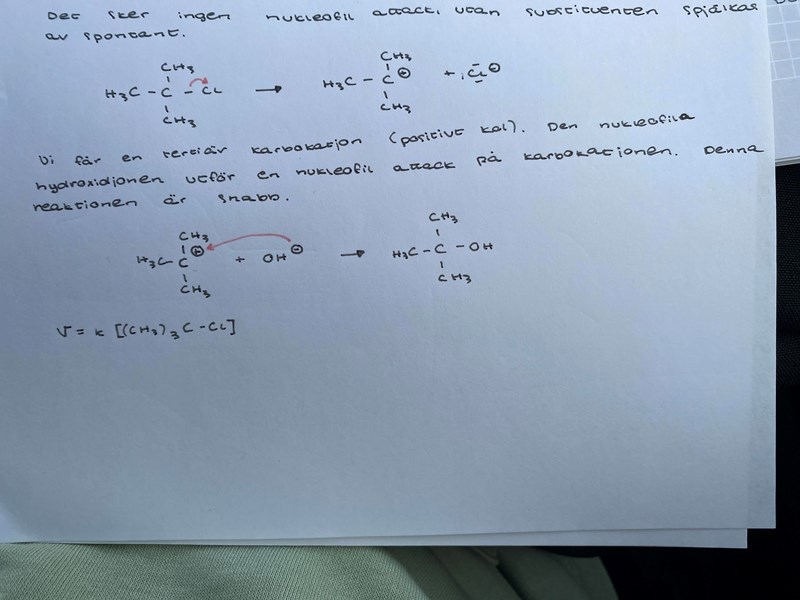 Det sker ingen nukleofil attack, utan substituenten spjälkas
av spontant.
CH3 CH3
H3C - C - Cl → H3C - C ⊕ + Cl ⊖
CH3 CH3
Vi får en tertiär karbokatjon (positivt kol). Den nukleofila
hydroxidjonen utför en nukleofil attack på karbokatjonen. Denna
reaktionen är snabb.
CH3 CH3
H3C C ⊕ + OH ⊖ → H3C - C - OH
CH3 CH3
v = k [(CH3)3C-Cl]